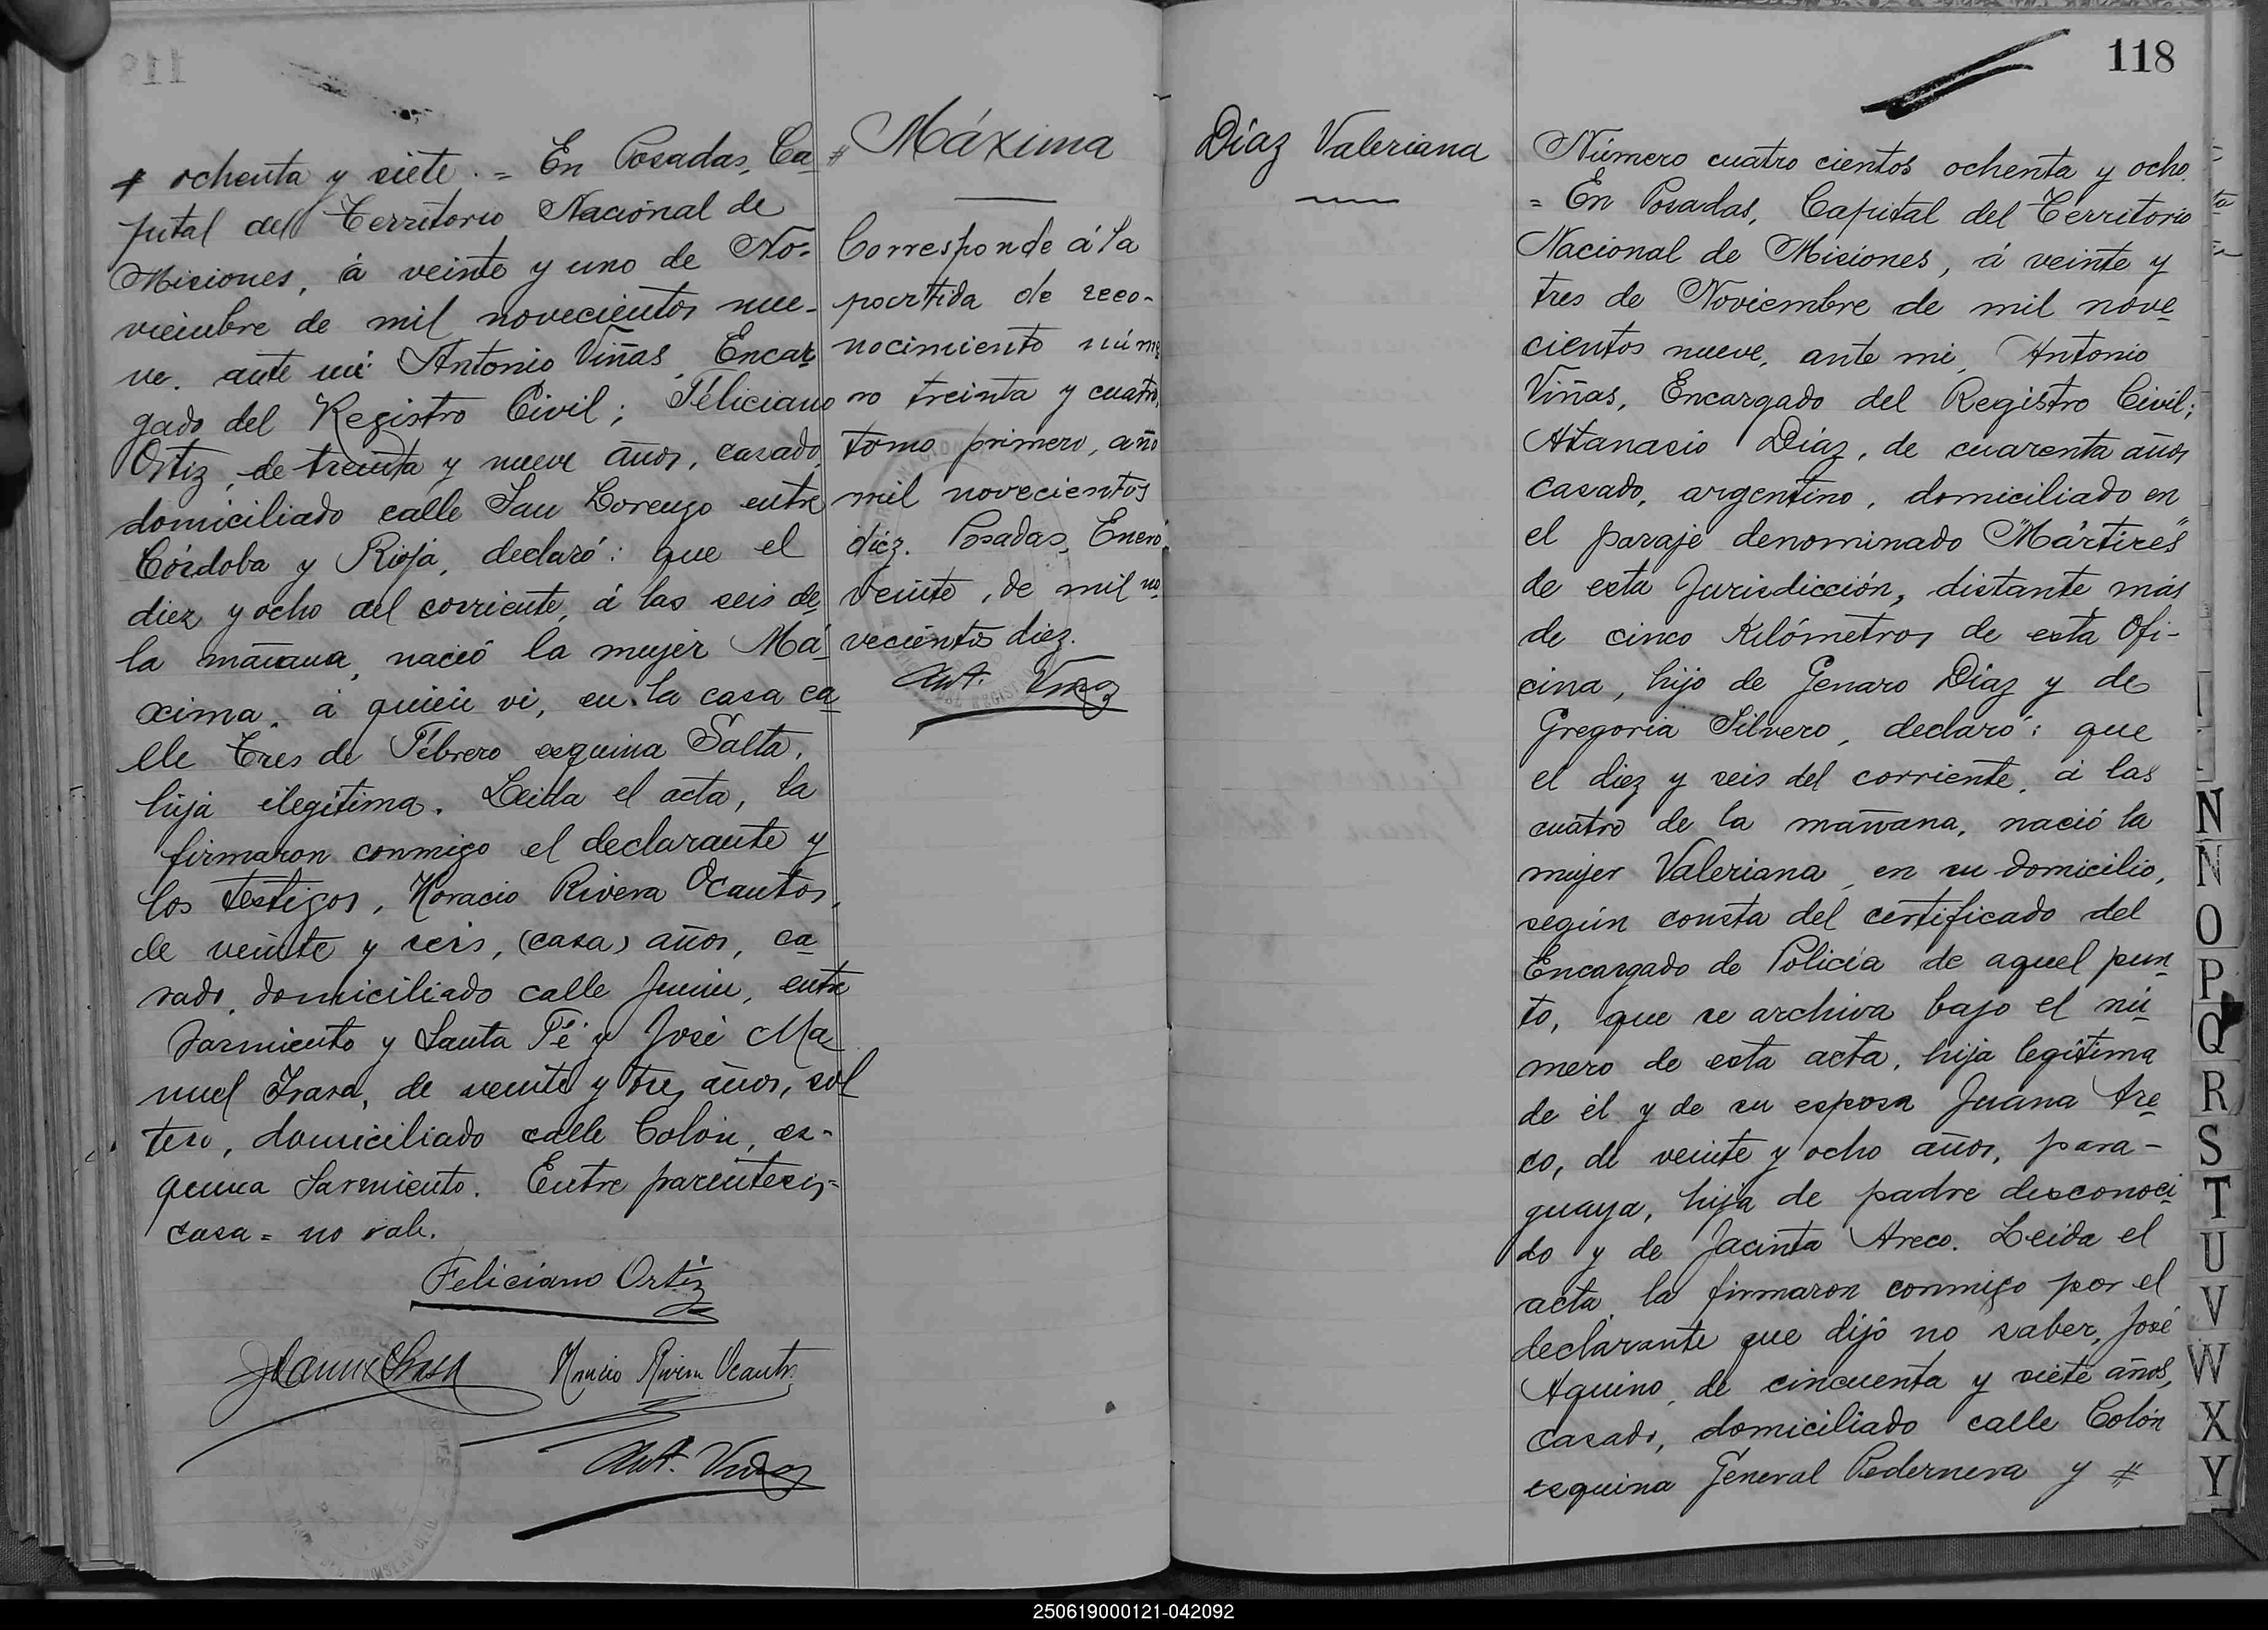 # ochenta y siete. = En Posadas, Ca-
pital del Territorio Nacional de
Misiones, á veinte y uno de No-
viembre de mil novecientos nue-
ve. ante mi Antonio Viñas, Encar
gado del Registro Civil; Feliciano
Ortiz, de treinta y nueve años, casado,
domiciliado calle San Lorenzo entre
Córdoba y Rioja, declaró: que el
diez y ocho del corriente, á las seis de
la mañana, nació la mujer Má-
xima, á quien vi, en la casa ca
lle Tres de Febrero esquina Salta,
hija ilegítima. Leida el acta, la
firmaron conmigo el declarante y
los testigos, Horacio Rivera Ocantos,
de veinte y seis, (casa) años, ca
sado, domiciliado calle Junin, entre
Sarmiento y Santa Fé y José Ma
nuel Irasa, de veinte y tres años, sol
tero, domiciliado calle Colón, es-
quina Sarmiento. Entre parentesis=
casa = no vale.
Feliciano Ortiz
Horacio Rivera Ocantos
Ant. Viñas
# Máxima
Corresponde á la
partida de reco-
nocimiento núme
ro treinta y cuatro,
tomo primero, año
mil novecientos
diez. Posadas, Enero
veinte, de mil no
vecientos diez.
Ant. Viñas
Díaz Valeriana
118
Número cuatro cientos ochenta y ocho.
= En Posadas, Capital del Territorio
Nacional de Misiones, á veinte y
tres de Noviembre de mil nove
cientos nueve, ante mi, Antonio
Viñas, Encargado del Registro Civil;
Atanasio Díaz, de cuarenta años
casado, argentino, domiciliado en
el paraje denominado "Mártires"
de esta Jurisdicción, distante más
de cinco Kilómetros de esta Ofi-
cina, hijo de Genaro Díaz y de
Gregoria Silvero, declaró: que
el diez y seis del corriente, á las
cuatro de la mañana, nació la
mujer Valeriana, en su domicilio,
según consta del certificado del
Encargado de Policía de aquel pun
to, que se archiva bajo el nú
mero de esta acta, hija legítima
de él y de su esposa Juana Are
co, de veinte y ocho años, para-
guaya, hija de padre desconoci
do y de Jacinta Areco. Leida el
acta, la firmaron conmigo por el
declarante que dijo no saber, José
Aquino, de cincuenta y siete años,
casado, domiciliado calle Colón
esquina General Pedernera y #
N
N
O
P
Q
R
S
T
U
V
W
X
Y
250619000121-042092